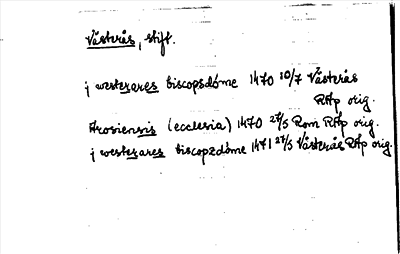 Västerås, stift.
j westerares biscopsdöme 1470 10/7 Västerås
RAp orig.
Arosiensis (ecclesia) 1470 27/5 Rom RAp orig.
j westerares biscopzdöme 1471 27/5 Västerås RAp orig.